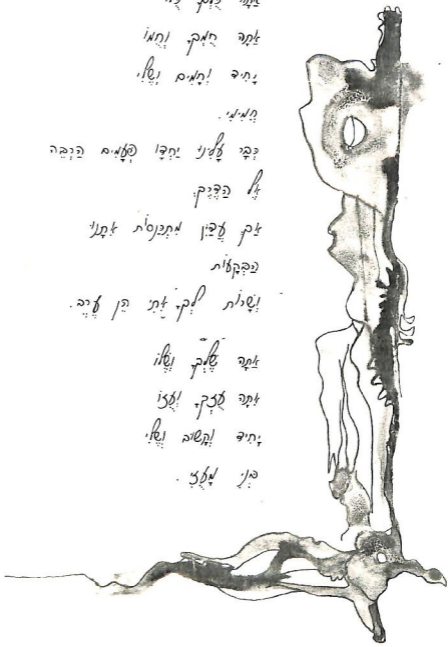 אַתָּה חֻמְּךָ וְחֻמּוֹ
יָחִיד וְחָמִים וְשֶׁלִּי
חֲמִימִי.
כְּבָר עָלִינוּ יַחְדָּו פְּעָמִים הַרְבֵּה
אֶל הַדֶּרֶךְ.
אַךְ עֲדַיִן מִתְכַּנְּסוֹת אִתָּנוּ
הַבְּקָעוֹת
וְשָׁרוֹת לְךָ אִתִּי הֵן עֶרֶב.
אַתָּה שֶׁלְּךָ וְשֶׁלּוֹ
אַתָּה עֻזְּךָ וְעֻזּוֹ
יָחִיד וְקָשׁוּב וְשֶׁלִּי
בְּנִי מָעֻזִּי.